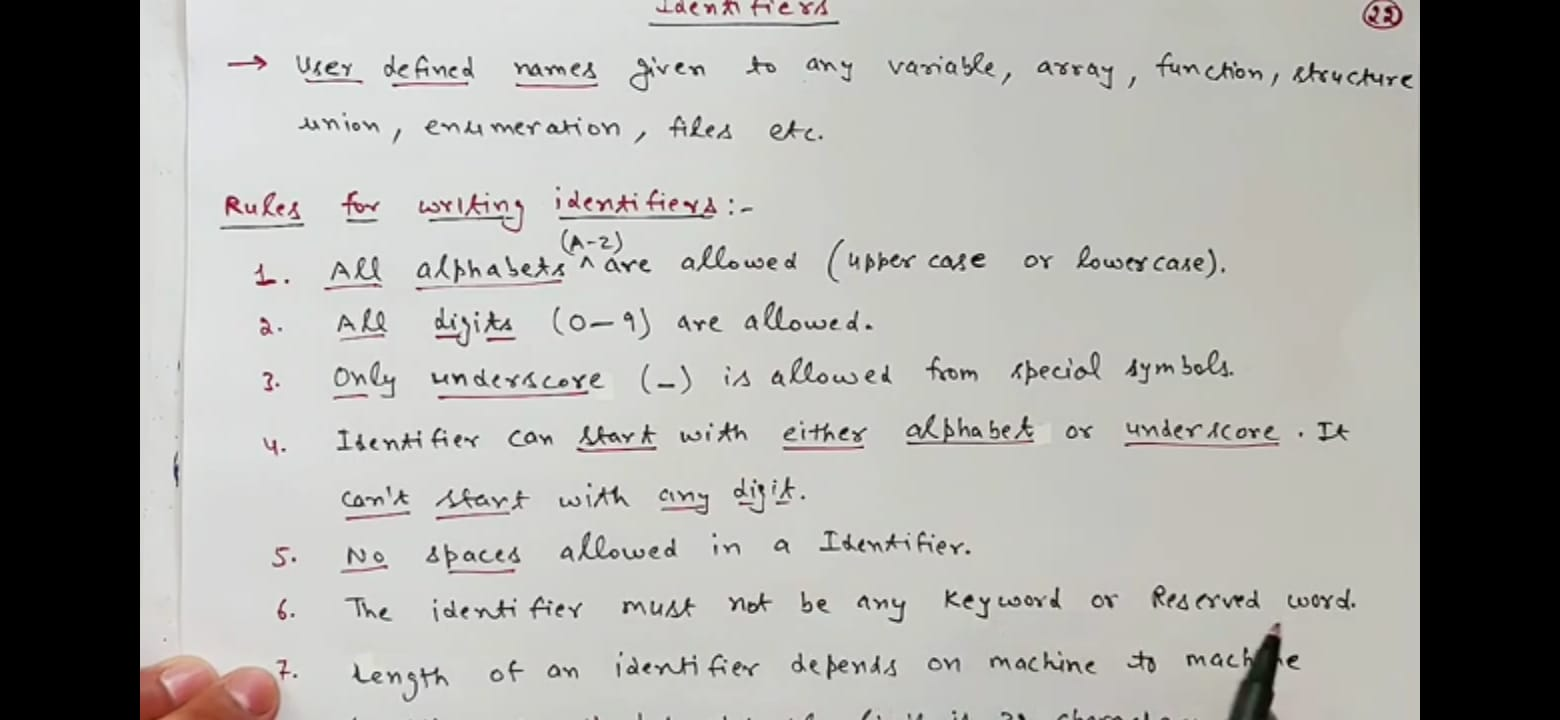 Identifiers
22
→ User defined names given to any variable, array, function, structure
union, enumeration, files etc.
Rules for writing identifiers:-
(A-Z)
1. All alphabets ^ are allowed (upper case or lowercase).
2. All digits (0-9) are allowed.
3. Only underscore (_) is allowed from special symbols.
4. Identifier can start with either alphabet or underscore. It
can't start with any digit.
5. No spaces allowed in a Identifier.
6. The identifier must not be any keyword or Reserved word.
7. Length of an identifier depends on machine to machine